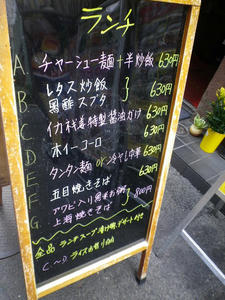 ランチ
A. チャーシュー麺+半炒飯 630円
B. レタス炒飯
黒酢スブタ 630円
C. イカ 特製醤油がけ 630円
D. ホイコーロー
E. タンタン麺 or 冷やし中華 630円
F. 五目焼きそば
アワビ入り 
G. 上海焼きそば 800円
全品 ランチスープ 漬け物 デザート付き
C.〜D. ライスお替り自由